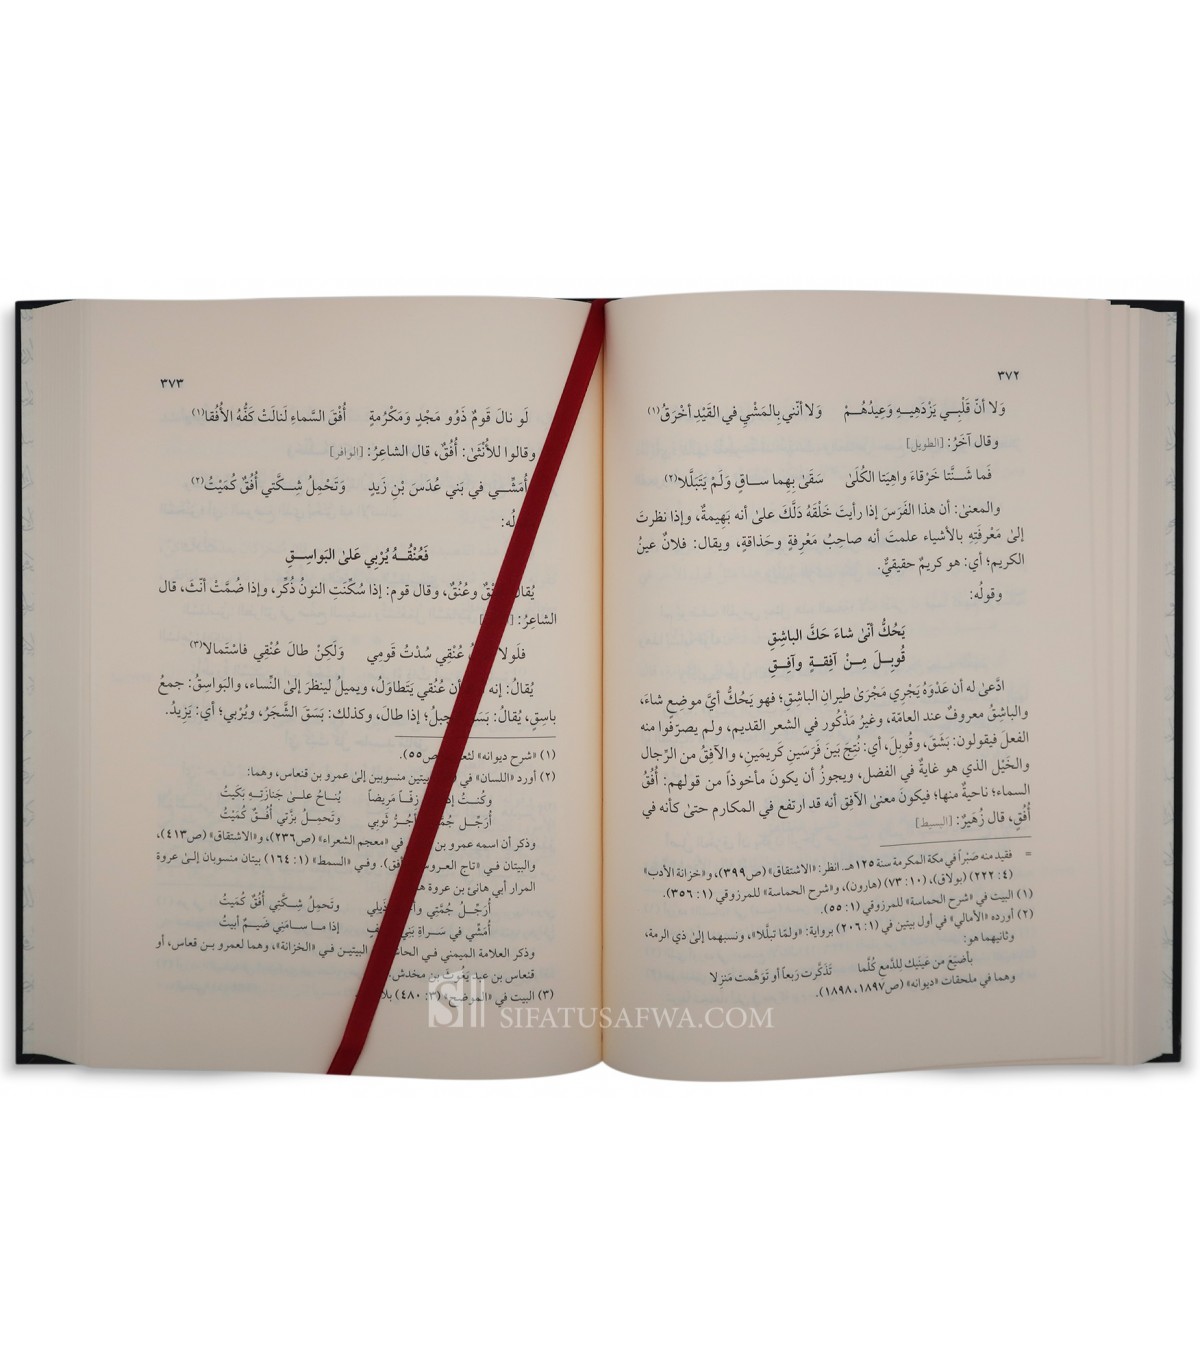 ٣٧٢
وَلا أنّ قَلْبِي يَزْدَهِيهِ وَعِيدُهُمْ وَلا أنّني بِالمَشْيِ في القَيْدِ أخْرَقُ(١)
وقال آخَرُ: [الطويل]
فَما شَنَّتا خَرْقاءَ واهِيَتا الكُلَىٰ سَقَىٰ بِهِما ساقٍ وَلَمْ يَتَبَلَّلا(٢)
والمعنىٰ: أن هذا الفَرَسَ إذا رأيتَ خَلْقَهُ دَلَّكَ علىٰ أنه بَهِيمةٌ، وإذا نظرتَ
إلىٰ مَعْرِفَتِهِ بالأشياءِ علمتَ أنه صاحِبُ مَعْرِفةٍ وحَذاقةٍ، ويقال: فلانٌ عينُ
الكريم؛ أي: هو كريمٌ حقيقيٌّ.
وقولُه:
يَحُكُّ أنّىٰ شاءَ حَكَّ الباشِقِ
قُوبِلَ مِنْ آفِقةٍ وآفِقِ
ادَّعىٰ له أن عَدْوَهُ يَجْرِي مَجْرَىٰ طيرانِ الباشِقِ؛ فهو يَحُكُّ أيَّ موضِعٍ شاءَ،
والباشِقُ معروفٌ عند العامّة، وغيرُ مَذْكُورٍ في الشعر القديم، ولم يصرّفوا منه
الفعلَ فيقولون: بَشَقَ، وقُوبِلَ، أي: نُتِجَ بَينَ فَرَسَينِ كَرِيمَينِ، والآفِقُ من الرِّجال
والخَيْلِ الذي هو غايةٌ في الفضل، ويجوزُ أن يكونَ مأخوذاً من قولهم: أُفُقُ
السماء؛ ناحيةٌ منها؛ فيكونَ معنىٰ الآفِقِ أنه قد ارتفع في المكارم حتىٰ كأنه في
أُفُقٍ، قال زُهَيرٌ: [البسيط]
= فقيد منه صَبْراً في مكة المكرمة سنة ١٢٥هـ. انظر: «الاشتقاق» (ص٣٩٩)، و«خزانة الأدب»
(٤: ٢٢٢) (بولاق)، (١٠: ٧٣) (هارون)، و«شرح الحماسة» للمرزوقي (١: ٣٥٦).
(١) البيت في «شرح الحماسة» للمرزوقي (١: ٥٥).
(٢) أورده «الأمالي» في أول بيتين في (١: ٢٠٦) برواية: «ولمّا تبلَّلا»، ونسبهما إلىٰ ذي الرمة،
وثانيهما هو:
بأضيَعَ من عَينَيك لِلدَّمعِ كُلَّما تَذَكَّرت رَبعاً أو تَوَهَّمت مَنزِلا
وهما في ملحقات «ديوانه» (ص١٨٩٧، ١٨٩٨).
٣٧٣
لَو نالَ قَومٌ ذَوُو مَجْدٍ وَمَكْرُمةٍ أُفْقَ السَّماءِ لَنالَتْ كَفُّهُ الأُفُقا(١)
وقالوا للأُنْثَىٰ: أُفُقٌ، قال الشاعِرُ: [الوافر]
أُمَشِّي في بَني عُدَسَ بْنِ زَيدٍ وَتَحْمِلُ شِكَّتي أُفُقٌ كُمَيْتُ(٢)
فَعُنْقُهُ يُرْبِي عَلىٰ البَواسِقِ
يُقالُ وعُنُقٌ، وقال قوم: إذا سُكِّنَتِ النونُ ذُكِّر، وإذا ضُمَّتْ أنّثَ، قال
الشاعِرُ:
فلَولا عُنْقِي سُدْتُ قَومِي وَلَكِنْ طالَ عُنْقِي فاسْتَمالا(٣)
يُقالُ: إنه أن عُنُقي يَتَطاوَلُ، ويميلُ لينظرَ إلىٰ النِّساء، والبَواسِقُ: جمعُ
باسِقٍ، يُقالُ: إذا طالَ، وكذلك: بَسَقَ الشَّجَرُ، ويُرْبِي؛ أي: يَزِيدُ.
(١) «شرح ديوانه» ص٥٥).
(٢) أورد «اللسان» في بيتين منسوبين إلىٰ عمرو بن قنعاس، وهما:
وكُنتُ زِقّاً مَرِيضاً يُناحُ علىٰ جَنازَتِهِ بَكَيتُ
أُرَجِّل أَجُرُّ ثَوبي وتَحمِلُ بِزَّتي أُفُقٌ كُمَيْتُ
وذكر أن اسمه عمرو بن في «معجم الشعراء» (ص٢٣٦)، و«الاشتقاق» (ص٤١٣)،
والبيتان في «تاج وفي «السمط» (١: ١٦٤) بيتان منسوبان إلىٰ عروة
المرار أبي هانئ بن عروة
أُرَجِّلُ جُمَّتِي ذَيلي وتَحمِلُ شِكَّتي أُفُقٌ كُمَيْتُ
أُمَشِّي في سَراةِ إذا ما سامَنِي ضَيمٌ أبيتُ
وذكر العلامة الميمني في البيتين في «الخزانة»، وهما لعمرو بن قعاس، أو
قنعاس بن عبد يَغُوث بن مخدش
(٣) البيت في «الموضح» (٣: ٤٨٠)
SIFATUSAFWA.COM